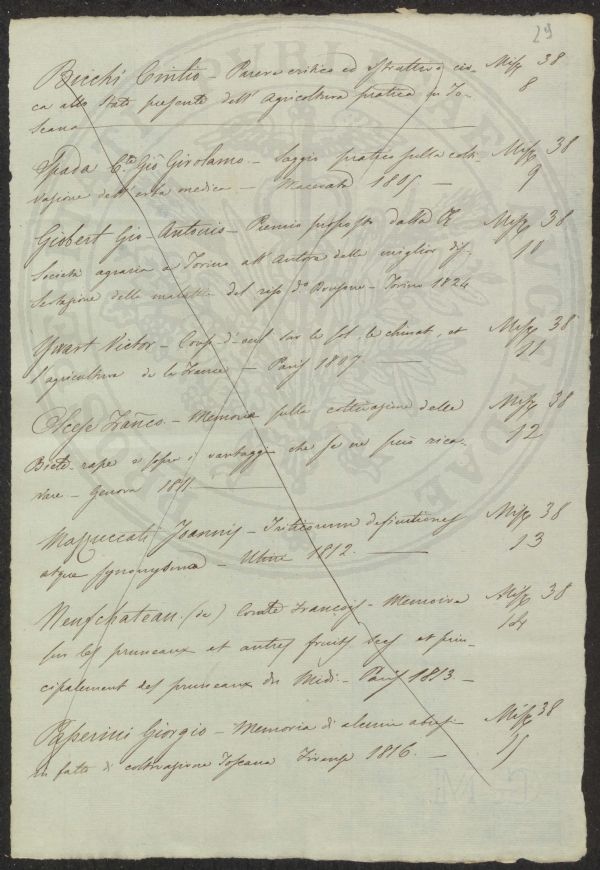 29
Ricchi Cintio - Parere critico ed istruttivo cir- Misc 38
ca allo Stato presente dell'Agricoltura pratica in To- 8
scana
Spada C.te Gio Girolamo. - Saggio pratico sulla colti- Misc 38
vazione dell'erba medica - Macerata 1805 - 9
Giobert Gio - Antonio - Premio proposto dalla R. Misc 38
Società agraria di Torino all'Autore della miglior dis- 10
sertazione della malattia del riso d.o Bousone - Torino 1824
Yvart Victor - Coup-d'oeil sur le sol, le climat, et Misc 38
l'agriculture de la France - Paris 1807 11
Franco. - Memoria sulla coltivazione delle Misc 38
Biete-rape e sopra i vantaggi che se ne può rica- 12
vare - Genova 1811
Mazzuccati Joannis - Triticorum definitiones Misc 38
atque synonyma - Utini 1812. 13
Neufchateau (de) Comte François - Memoire Misc 38
sur les pruneaux et autres fruits secs et prin- 14
cipalement des pruneaux du Midi - Paris 1813 -
Papérini Giorgio - Memoria di alcuni abusi Misc 38
in fatto di coltivazione Toscana Firenze 1816. - 15